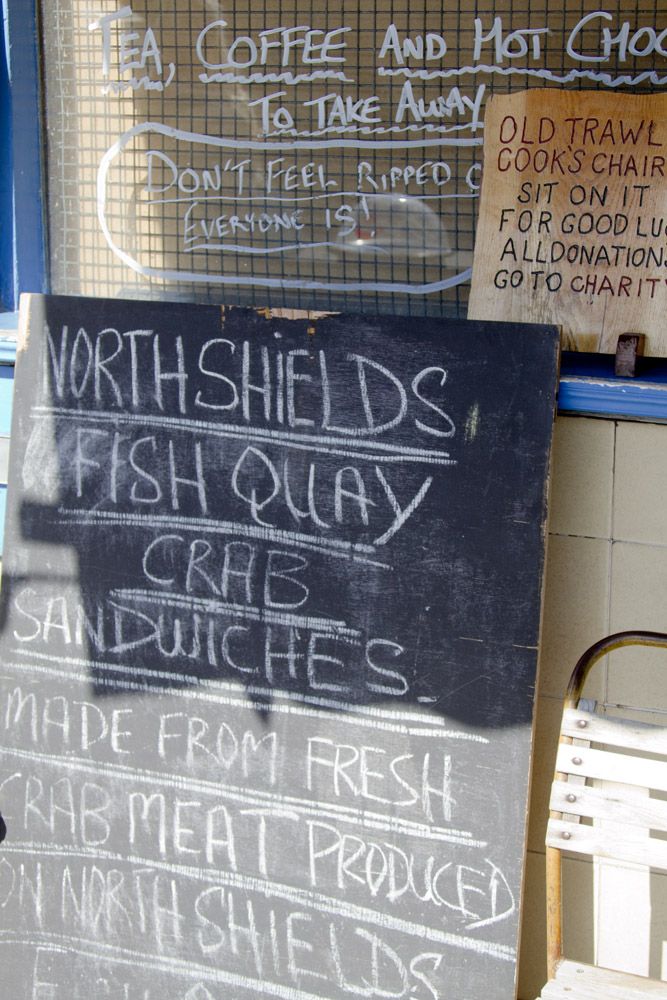 TEA, COFFEE AND HOT CHOC
TO TAKE AWAY
DON'T FEEL RIPPED O
EVERYONE IS!
OLD TRAWL
COOK'S CHAIR
SIT ON IT
FOR GOOD LUC
ALL DONATIONS
GO TO CHARITY
NORTH SHIELDS
FISH QUAY
CRAB
SANDWICHES
MADE FROM FRESH
CRAB MEAT PRODUCED
ON NORTH SHIELDS
FISH QUAY